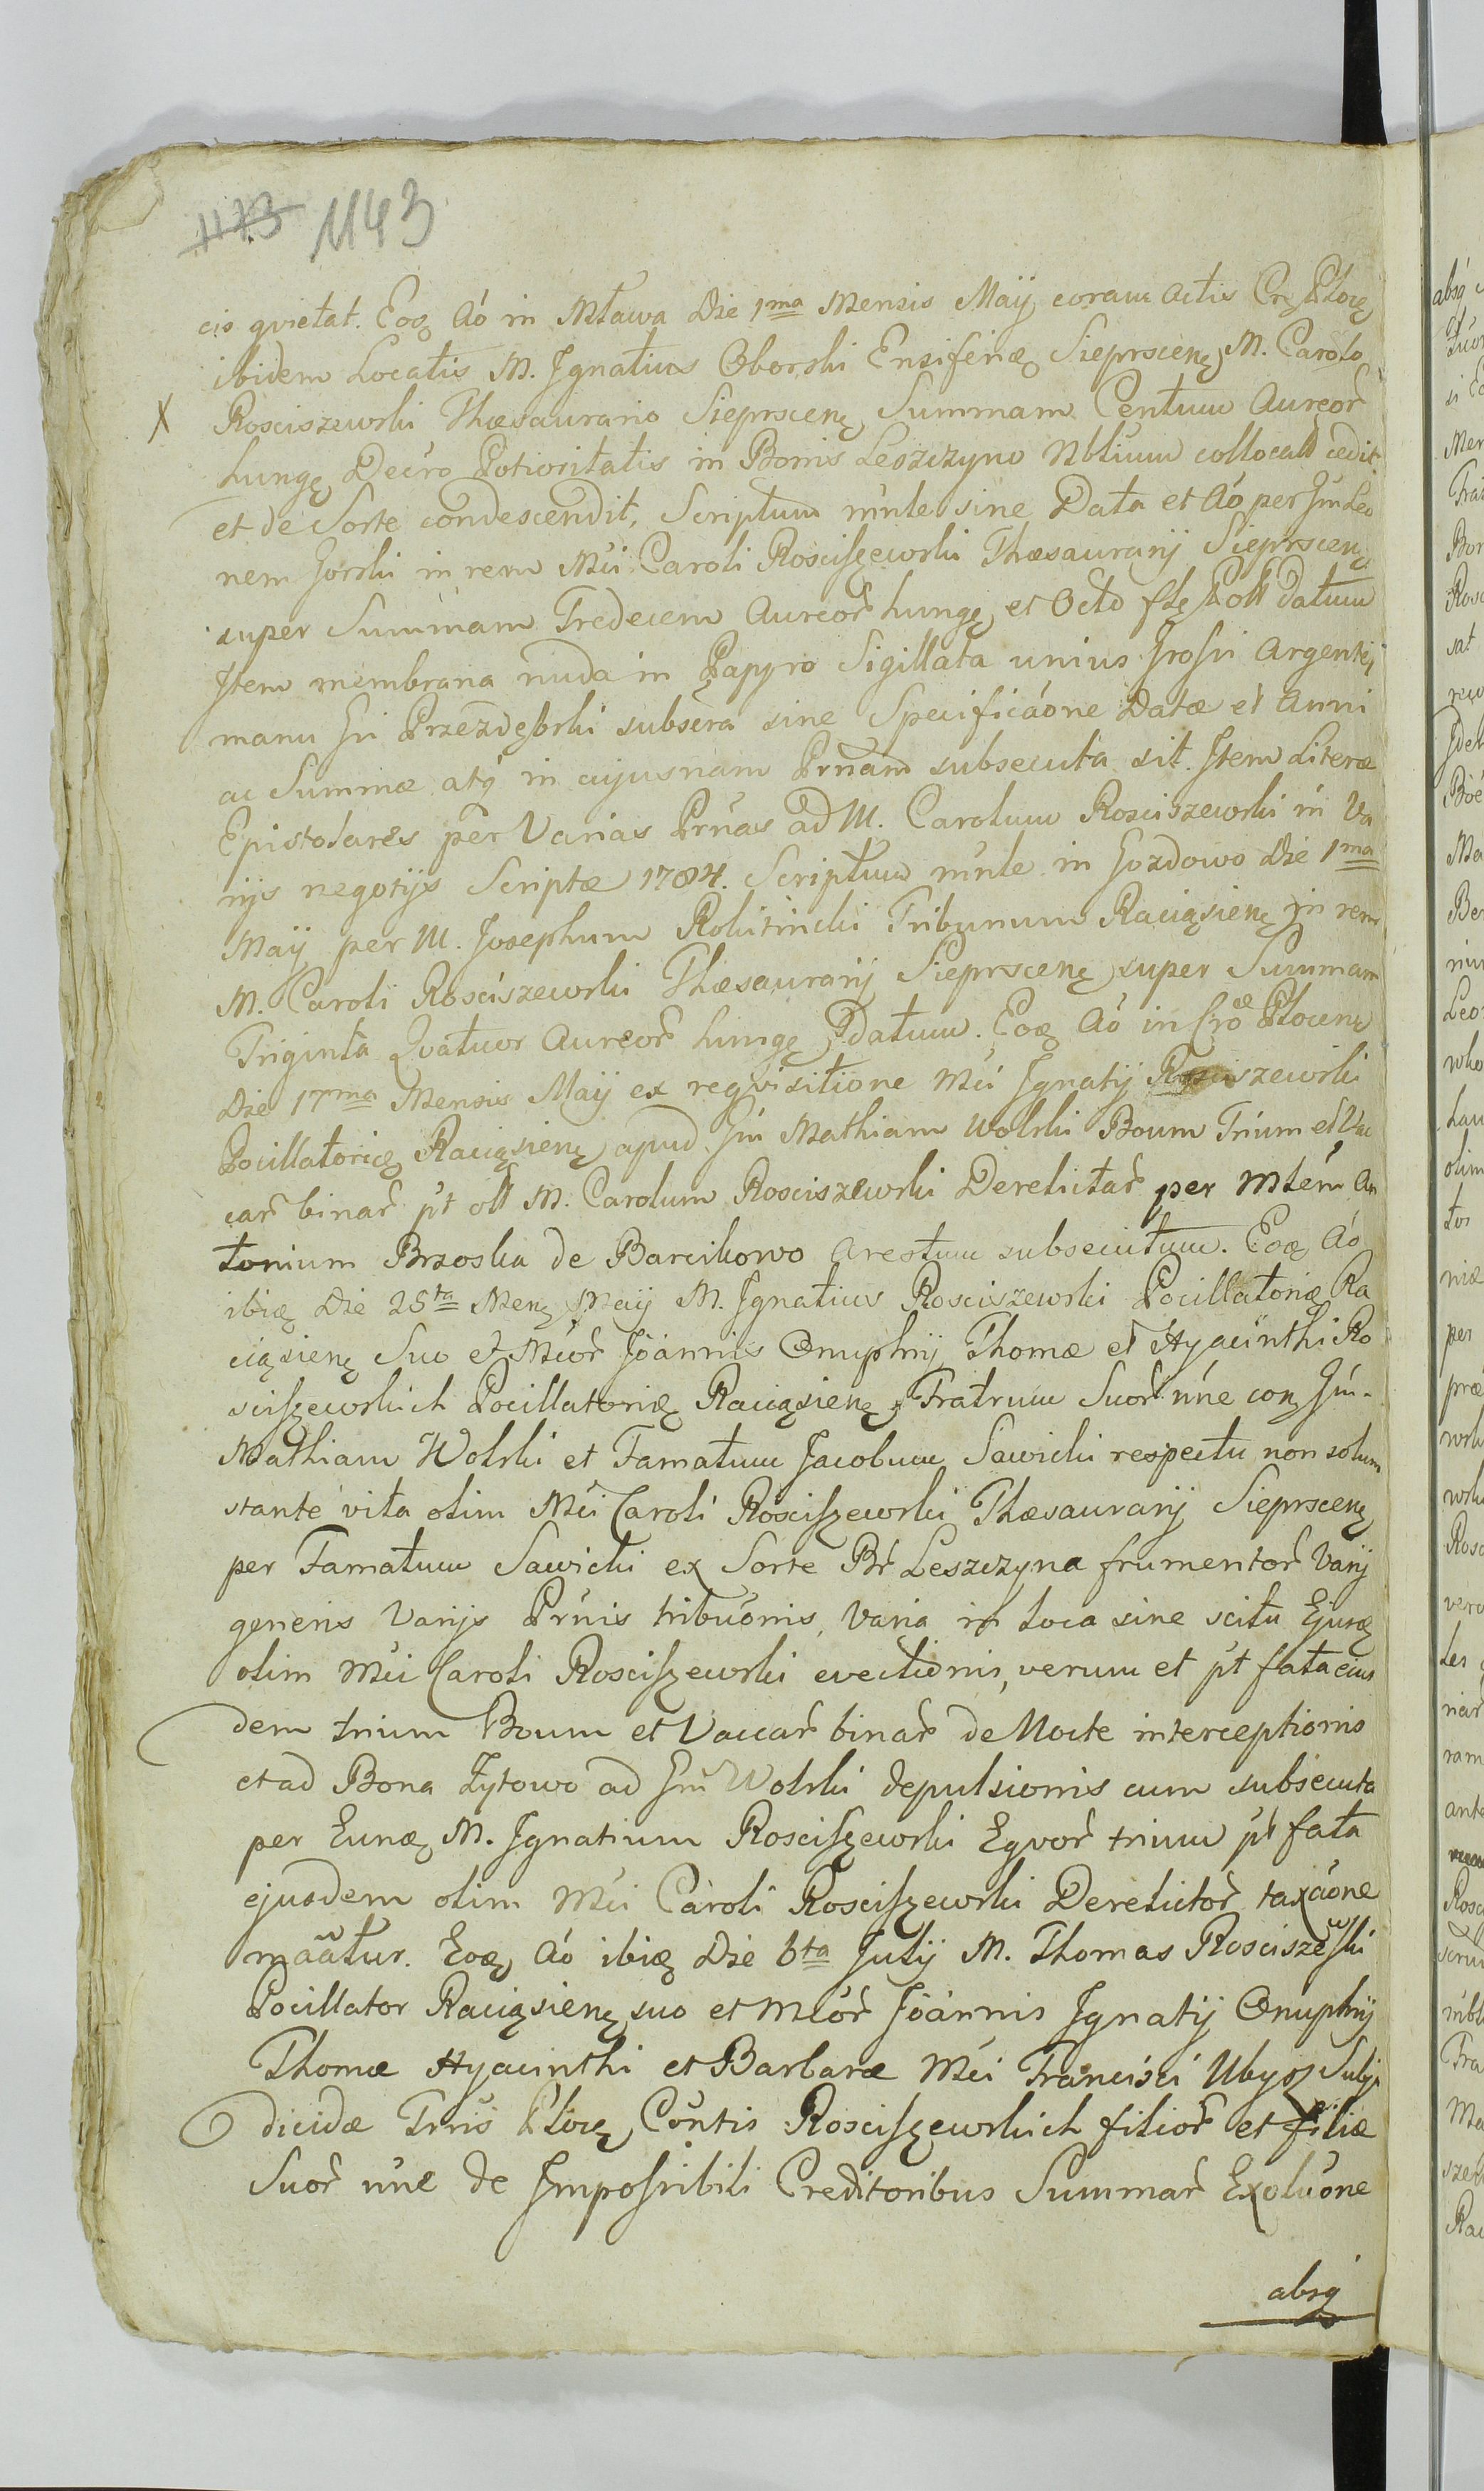 1173 1143
cis qvietat. Eoq Aó in Mława Die 1ma Mensis Maÿ coram Actis Cręł Płocę
ibidem Locatis M. Ignatius Oborski Ensiferiæ Sieprscenę M. Carolo
X Rosciszewski Thæsaurario Sieprscenę Summam Centum Aureor̃
hungę Decro Potioritatis in Bonis Leszczyno Nblium collocatt cedit
et de Sorte condescendit, Scriptum mnle sine Data et Aó per Gm Leo
nem Gorski in rem Mci Caroli Roscisęewski Thæsaurarij Sieprscenę
super Summam Tredecem Aureor̃ hungę et Octo flę Poll Datum
Item membrana nuda in Papyro Sigillata unius Grossi Argentei
manu Gi Przezdęßrki subscra sine Specificaóne Datæ et Anni
ac Summæ atq in cujusnam Prnam subsecuta sit. Item Literæ
Epistolares per Varias Prnas ad M. Carolum Rosciszewski in Va
rijs negotijs Scriptæ 1784. Scriptum mnle in Gozdowo Die 1ma
Maÿ per M. Josephum Rokitnicki Tribunum Raciąsienę in rem
M. Caroli Rosciszewski Thæsaurarij Sieprscenę super Summam
Triginta Qvatuor Aureor̃ hungę Datum. Eoq Aó in Cróæ Plocenę
Die 17ma Mensis Maÿ ex reqvisitione Mci Ignatij Rosciszewski
Pocillatoricę Raciąsienę apud Gm Mathiam Wolski Boum Trium et Vac
car̃ binar̃ pt ott M. Carolum Rosciszewski Derelictar̃ per Mtém An
tonium Brzoska de Barcikowo Arestum subsecutum. Eoq Aó
ibią Die 25ta Menę Maÿ M. Ignatius Rosciszewski Pocillatoriæ Ra
ciąsienę Suo et Mcor̃ Joannis Onuphrij Thomæ et Hyacinthi Ro
scisęewskich Pocillatoriæ Raciąsienę Fratrum Suor̃ nne con Gm
Mathiam Wolski et Famatum Jacobum Sawicki respectu non solum
stante vita olim Mci Caroli Roscisęewski Thæsaurarij Sieprscenę
per Famatum Sawicki ex Sorte Br̃ Leszczyna frumentor̃ Varij
generis Varijs Prnis tribuónis, Varia in loca sine scitu Ejusę
olim Mci Caroli Roscisęewski evectionis, verum et pt fata eius
dem trium Boum et Vaccar̃ binar̃ de Nocte interceptionis
et ad Bona Zytowo ad Gm Wolski depulsionis cum subsecuta
per Eunæ M. Ignatium Roscisęewski Eqvor̃ trium pt fata
ejusdem olim Mci Caroli Roscisęewski Derelictor̃ taxaóne
mãatur. Eoq Aó ibią Die 6ta Julij M. Thomas Rosciszewski
Pocillator Raciąsienę suo et Mcór̃ Joannis Ignatij Onuphrij
Thomæ Hyacinthi et Barbaræ Mci Francisci Ubysz Subju
dicidæ Trris Plocę Cóntis Roscisęewskich filior̃ et filiæ
Suor̃ nne de Impossibili Creditoribus Summar̃ Exoluóne
absq